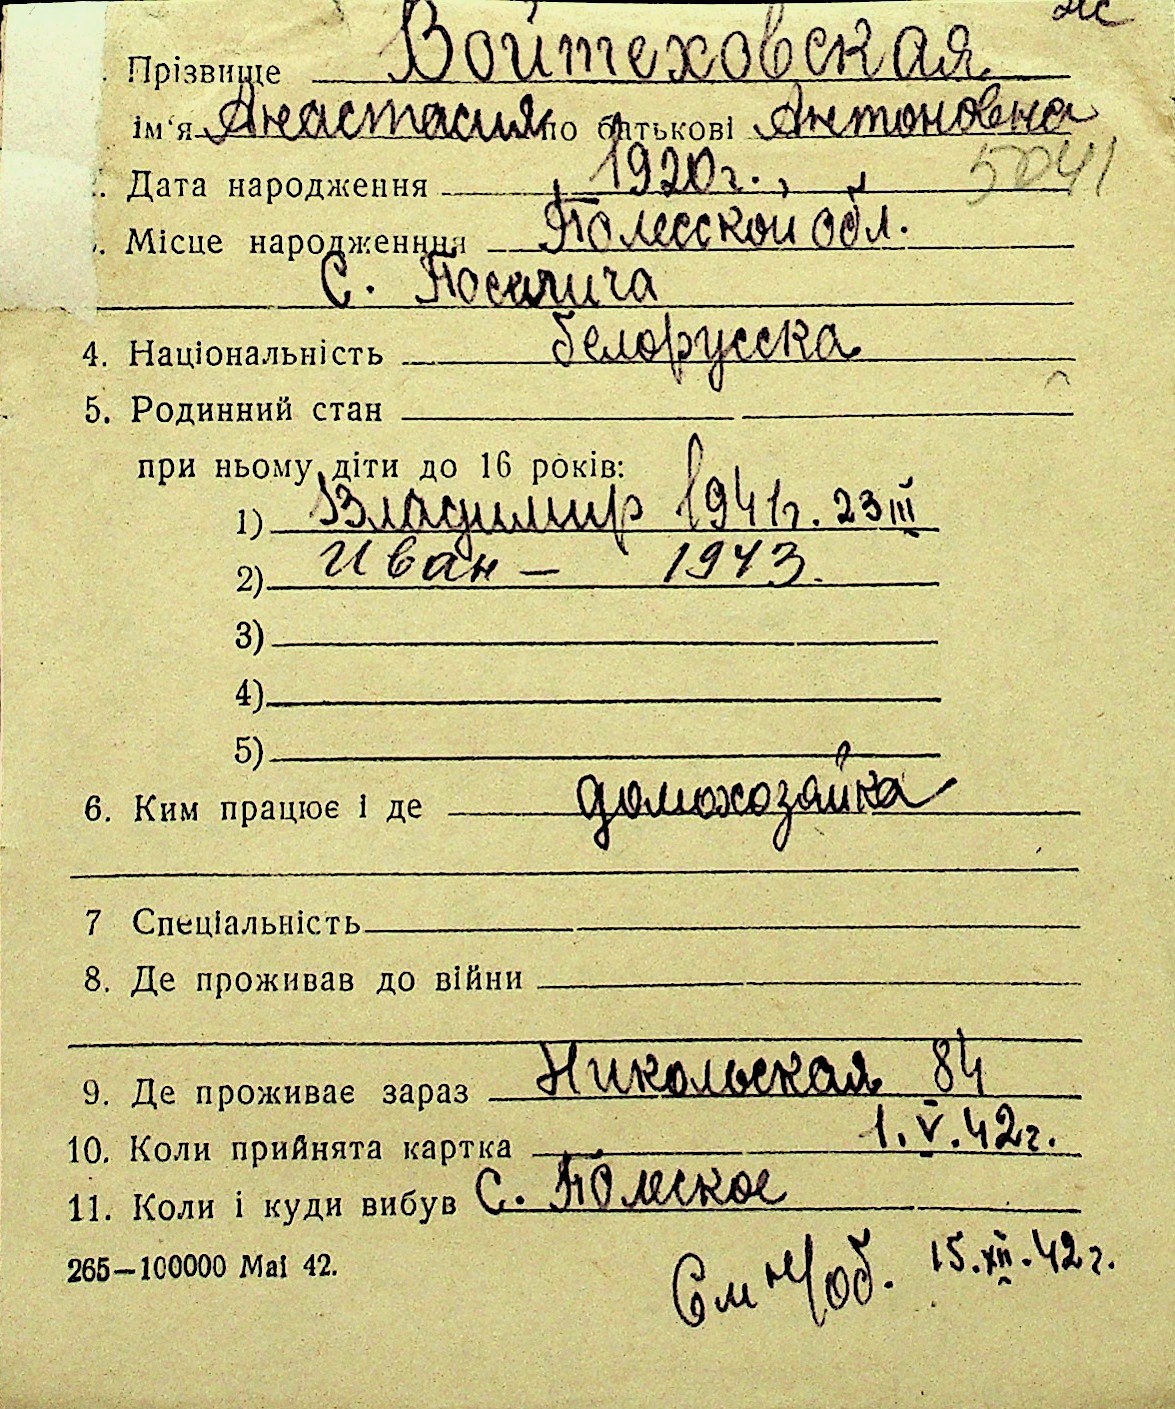 Прізвище Войтеховская
ім'я Анастасия по батькові Антоновна
Дата народження 1920г. 5041
Місце народженння Полесской обл.
С.
4. Національність белорусска
5. Родинний стан
при ньому діти до 16 років:
1) Владимир 1941г. 23 III
2) Иван – 1943.
3)
4)
5)
6. Ким працює і де домохозайка
7 Спеціальність
8. Де проживав до війни
9. Де проживає зараз Никольская 84
10. Коли прийнята картка 1.V.42г.
11. Коли і куди вибув С. Полеское
265—100000 Маі 42.
См н/об. 15.XII.42г.